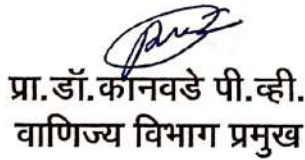 प्रा.डॉ.कानवडे पी.व्ही.
वाणिज्य विभाग प्रमुख